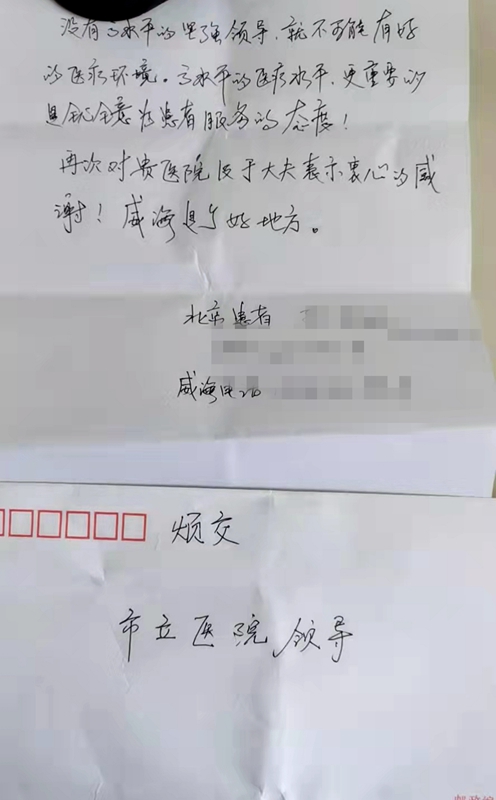 没有高水平的坚强领导，就不可能有好
的医疗环境。高水平的医疗水平，更重要的
是全心全意为患者服务的态度！
再次对贵医院及于大夫表示衷心的感
谢！威海是个好地方。
北京患者
威海电话
烦交
市立医院领导